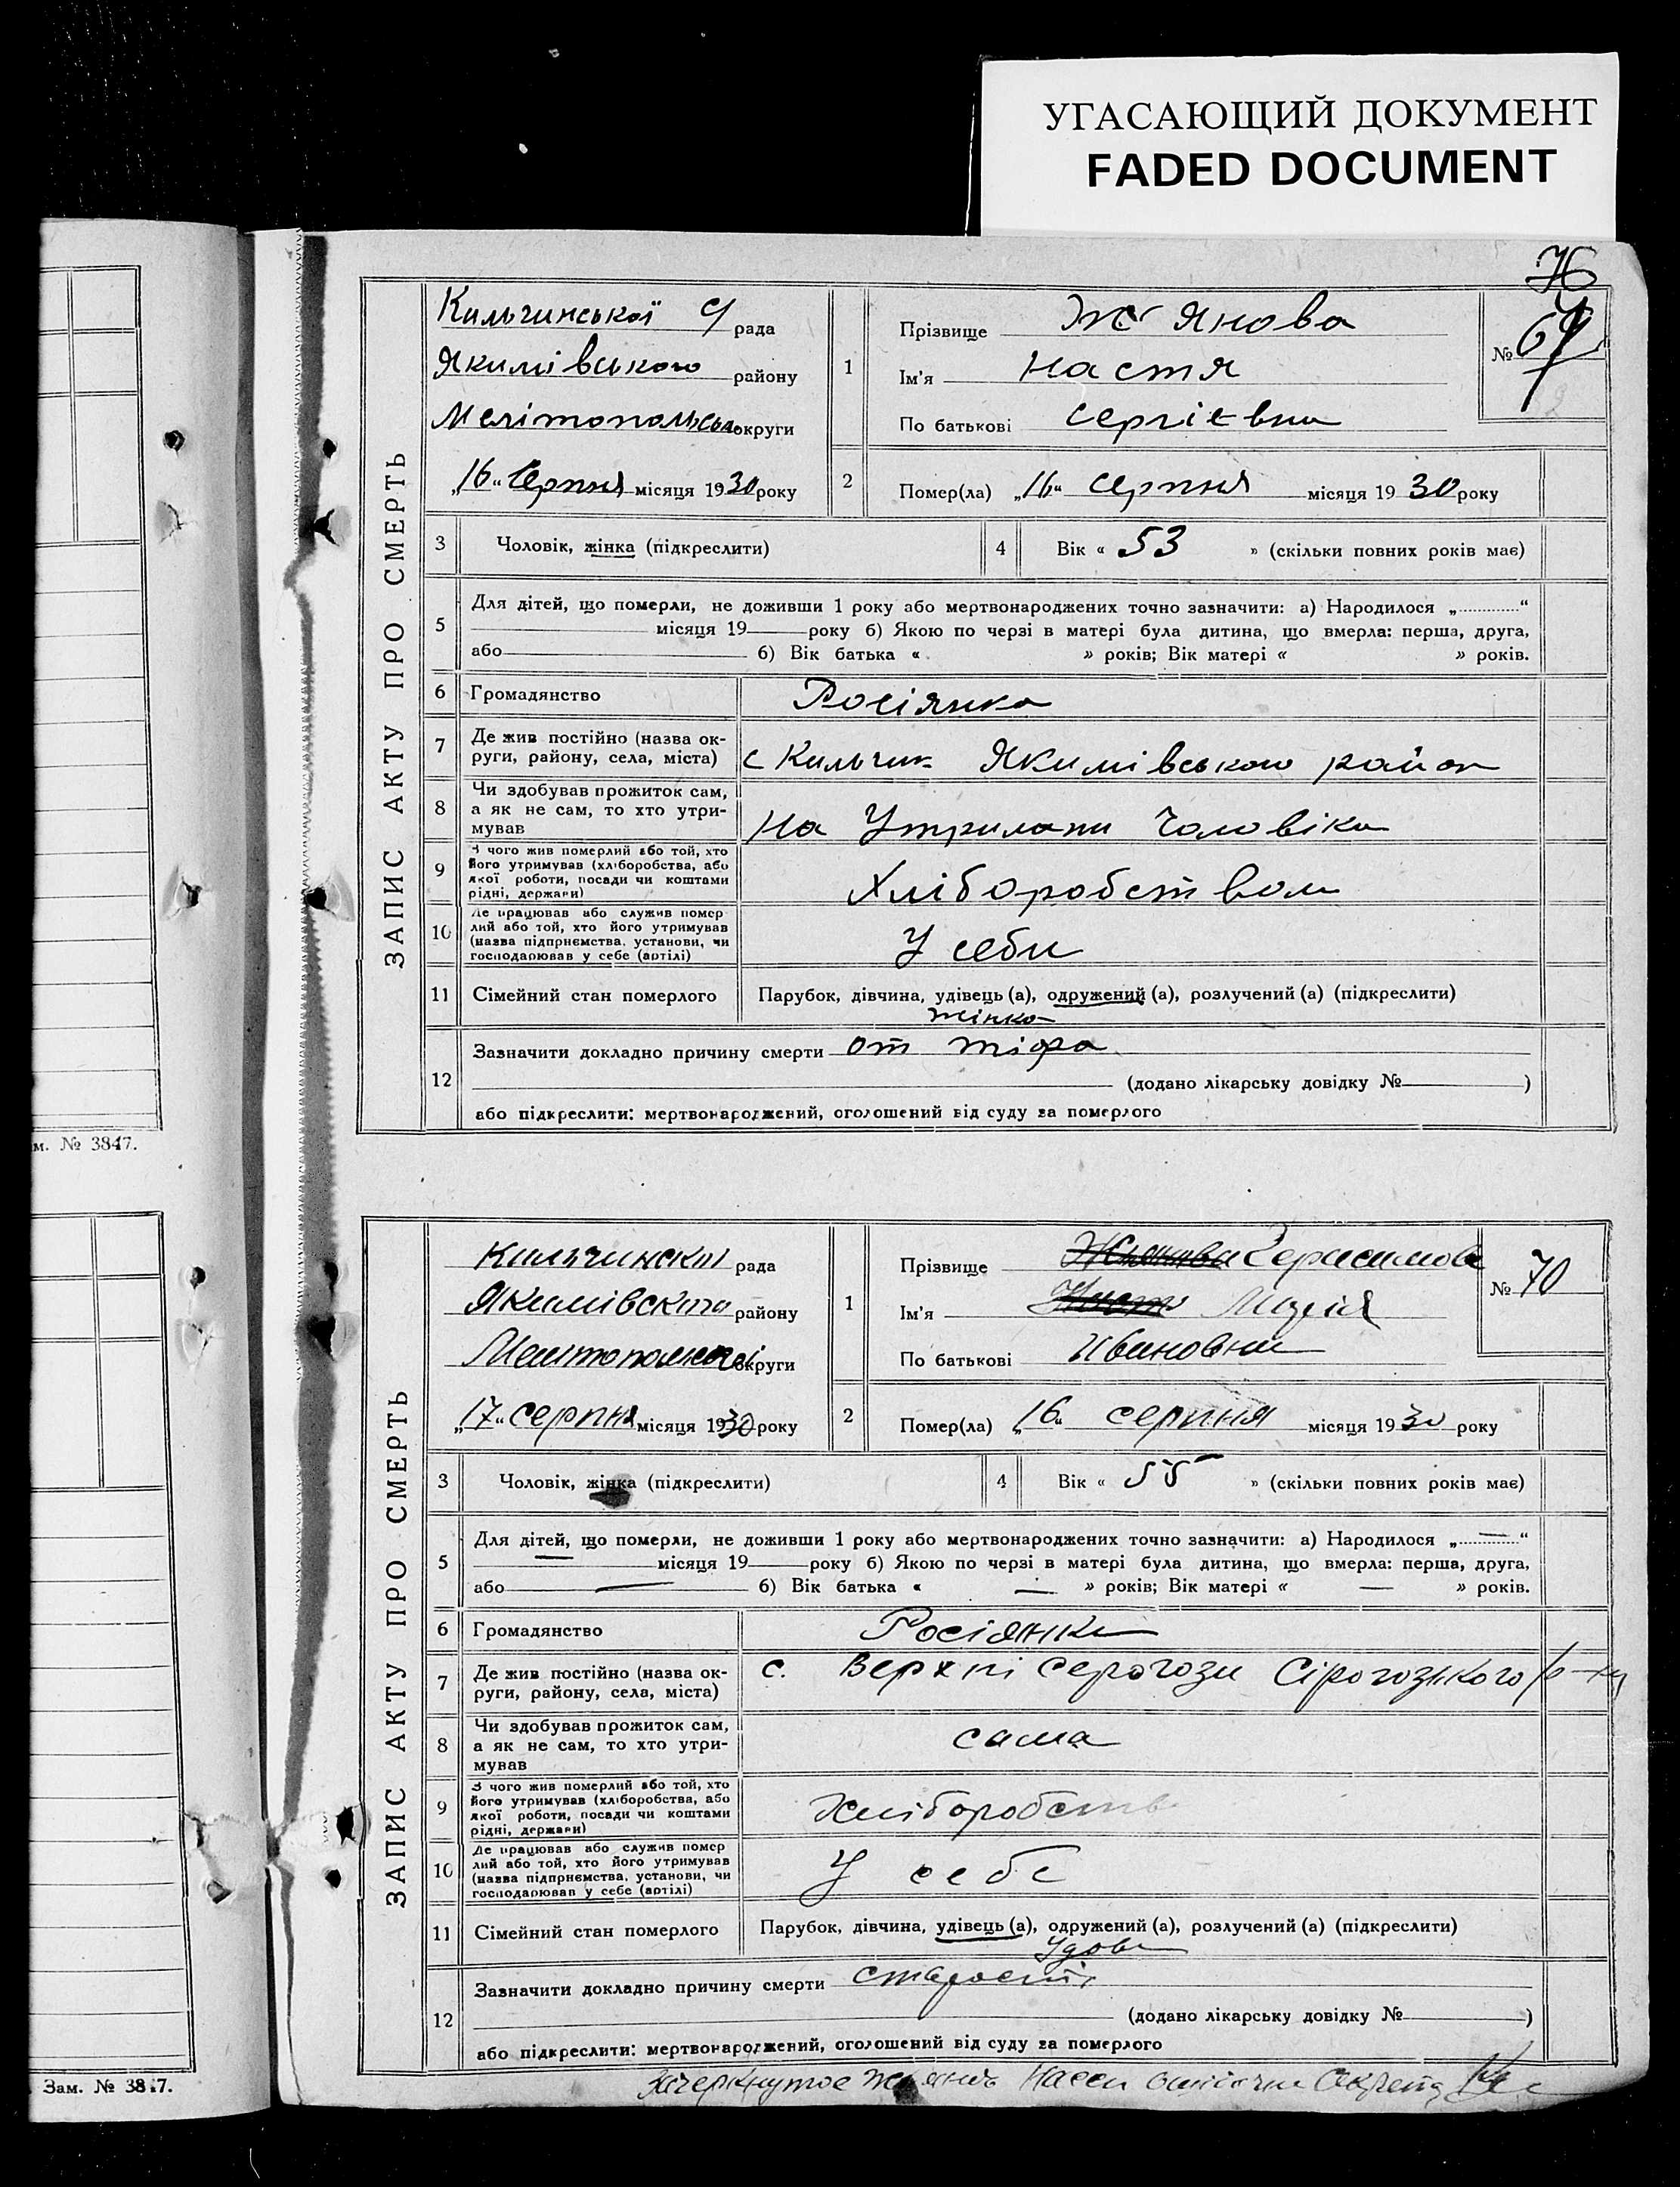 УГАСАЮЩИЙ ДОКУМЕНТ
FADED DOCUMENT
м. № 3847.
Зам. № 38.7.
76
ЗАПИС АКТУ ПРО СМЕРТЬ
Кильчинської с/рада
Якимівського району
Мелітопольськ округи
„16“ Серпня місяця 1930 року
1
Прізвище Ж Янова
Ім'я Настя
По батькові Сергієвна
№ 69
2
Помер(ла) „16“ серпня місяця 1930 року
3 Чоловік, жінка (підкреслити)
4 Вік « 53 » (скільки повних років має)
5
Для дітей, що померли, не доживши 1 року або мертвонароджених точно зазначити: а) Народилося „ “
місяця 19 року б) Якою по черзі в матері була дитина, що вмерла: перша, друга,
або б) Вік батька « » років; Вік матері « » років.
6 Громадянство Росіянка
7
Де жив постійно (назва ок-
руги, району, села, міста) с Кильчик Якимівського район
8
Чи здобував прожиток сам,
а як не сам, то хто утри-
мував На Утримани Чоловіка
9
З чого жив померлий або той, хто
його утримував (хліборобства, або
якої роботи, посади чи коштами
рідні, держави) Хліборобством
10
Де працював або служив помер
лий або той, хто його утримував
(назва підприємства, установи, чи
господарював у себе (артілі) У себи
11 Сімейний стан померлого Парубок, дівчина, удівець (а), одружений (а), розлучений (а) (підкреслити)
жінка
12
Зазначити докладно причину смерти от тіфа
(додано лікарську довідку № )
або підкреслити: мертвонароджений, оголошений від суду за померлого
ЗАПИС АКТУ ПРО СМЕРТЬ
Кильчинской рада
Якимівского району
округи
„17“ серпня місяця 1930 року
1
Прізвище Жянова Герасимова
Ім'я Настя Марія
По батькові Ивановна
№ 70
2
Помер(ла) „16“ серпня місяця 1930 року
3 Чоловік, жінка (підкреслити)
4 Вік « 55 » (скільки повних років має)
5
Для дітей, що померли, не доживши 1 року або мертвонароджених точно зазначити: а) Народилося „—“
місяця 19 року б) Якою по черзі в матері була дитина, що вмерла: перша, друга,
або — б) Вік батька « — » років; Вік матері « — » років.
6 Громадянство Росіянка
7
Де жив постійно (назва ок-
руги, району, села, міста) с. Верхні Серогози Сірогозького р-ну
8
Чи здобував прожиток сам,
а як не сам, то хто утри-
мував сама
9
З чого жив померлий або той, хто
його утримував (хліборобства, або
якої роботи, посади чи коштами
рідні, держави) Хліборобств
10
Де працював або служив помер
лий або той, хто його утримував
(назва підприємства, установи, чи
господарював у себе (артілі) У себе
11 Сімейний стан померлого Парубок, дівчина, удівець (а), одружений (а), розлучений (а) (підкреслити)
Удова
12
Зазначити докладно причину смерти старості
(додано лікарську довідку № )
або підкреслити: мертвонароджений, оголошений від суду за померлого
Зачеркнутое